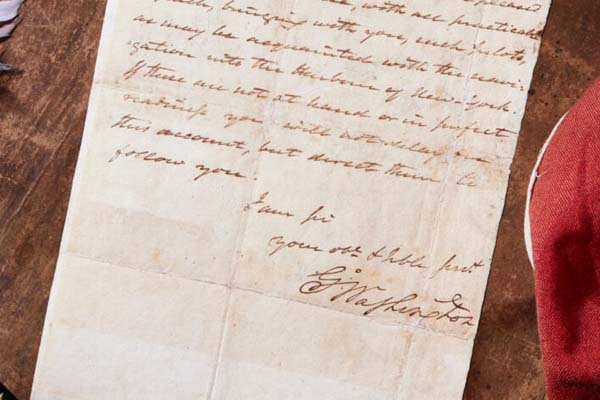 with all practicable
bringing with you, such Pilots,
as may be acquainted with the navi-
gation into the Harbour of New-York.
If these are not at hand or in perfect
readiness you will not delay on
this account, but direct them to
follow you
I am Sir
Your obt. & hble servt.
Go: Washington